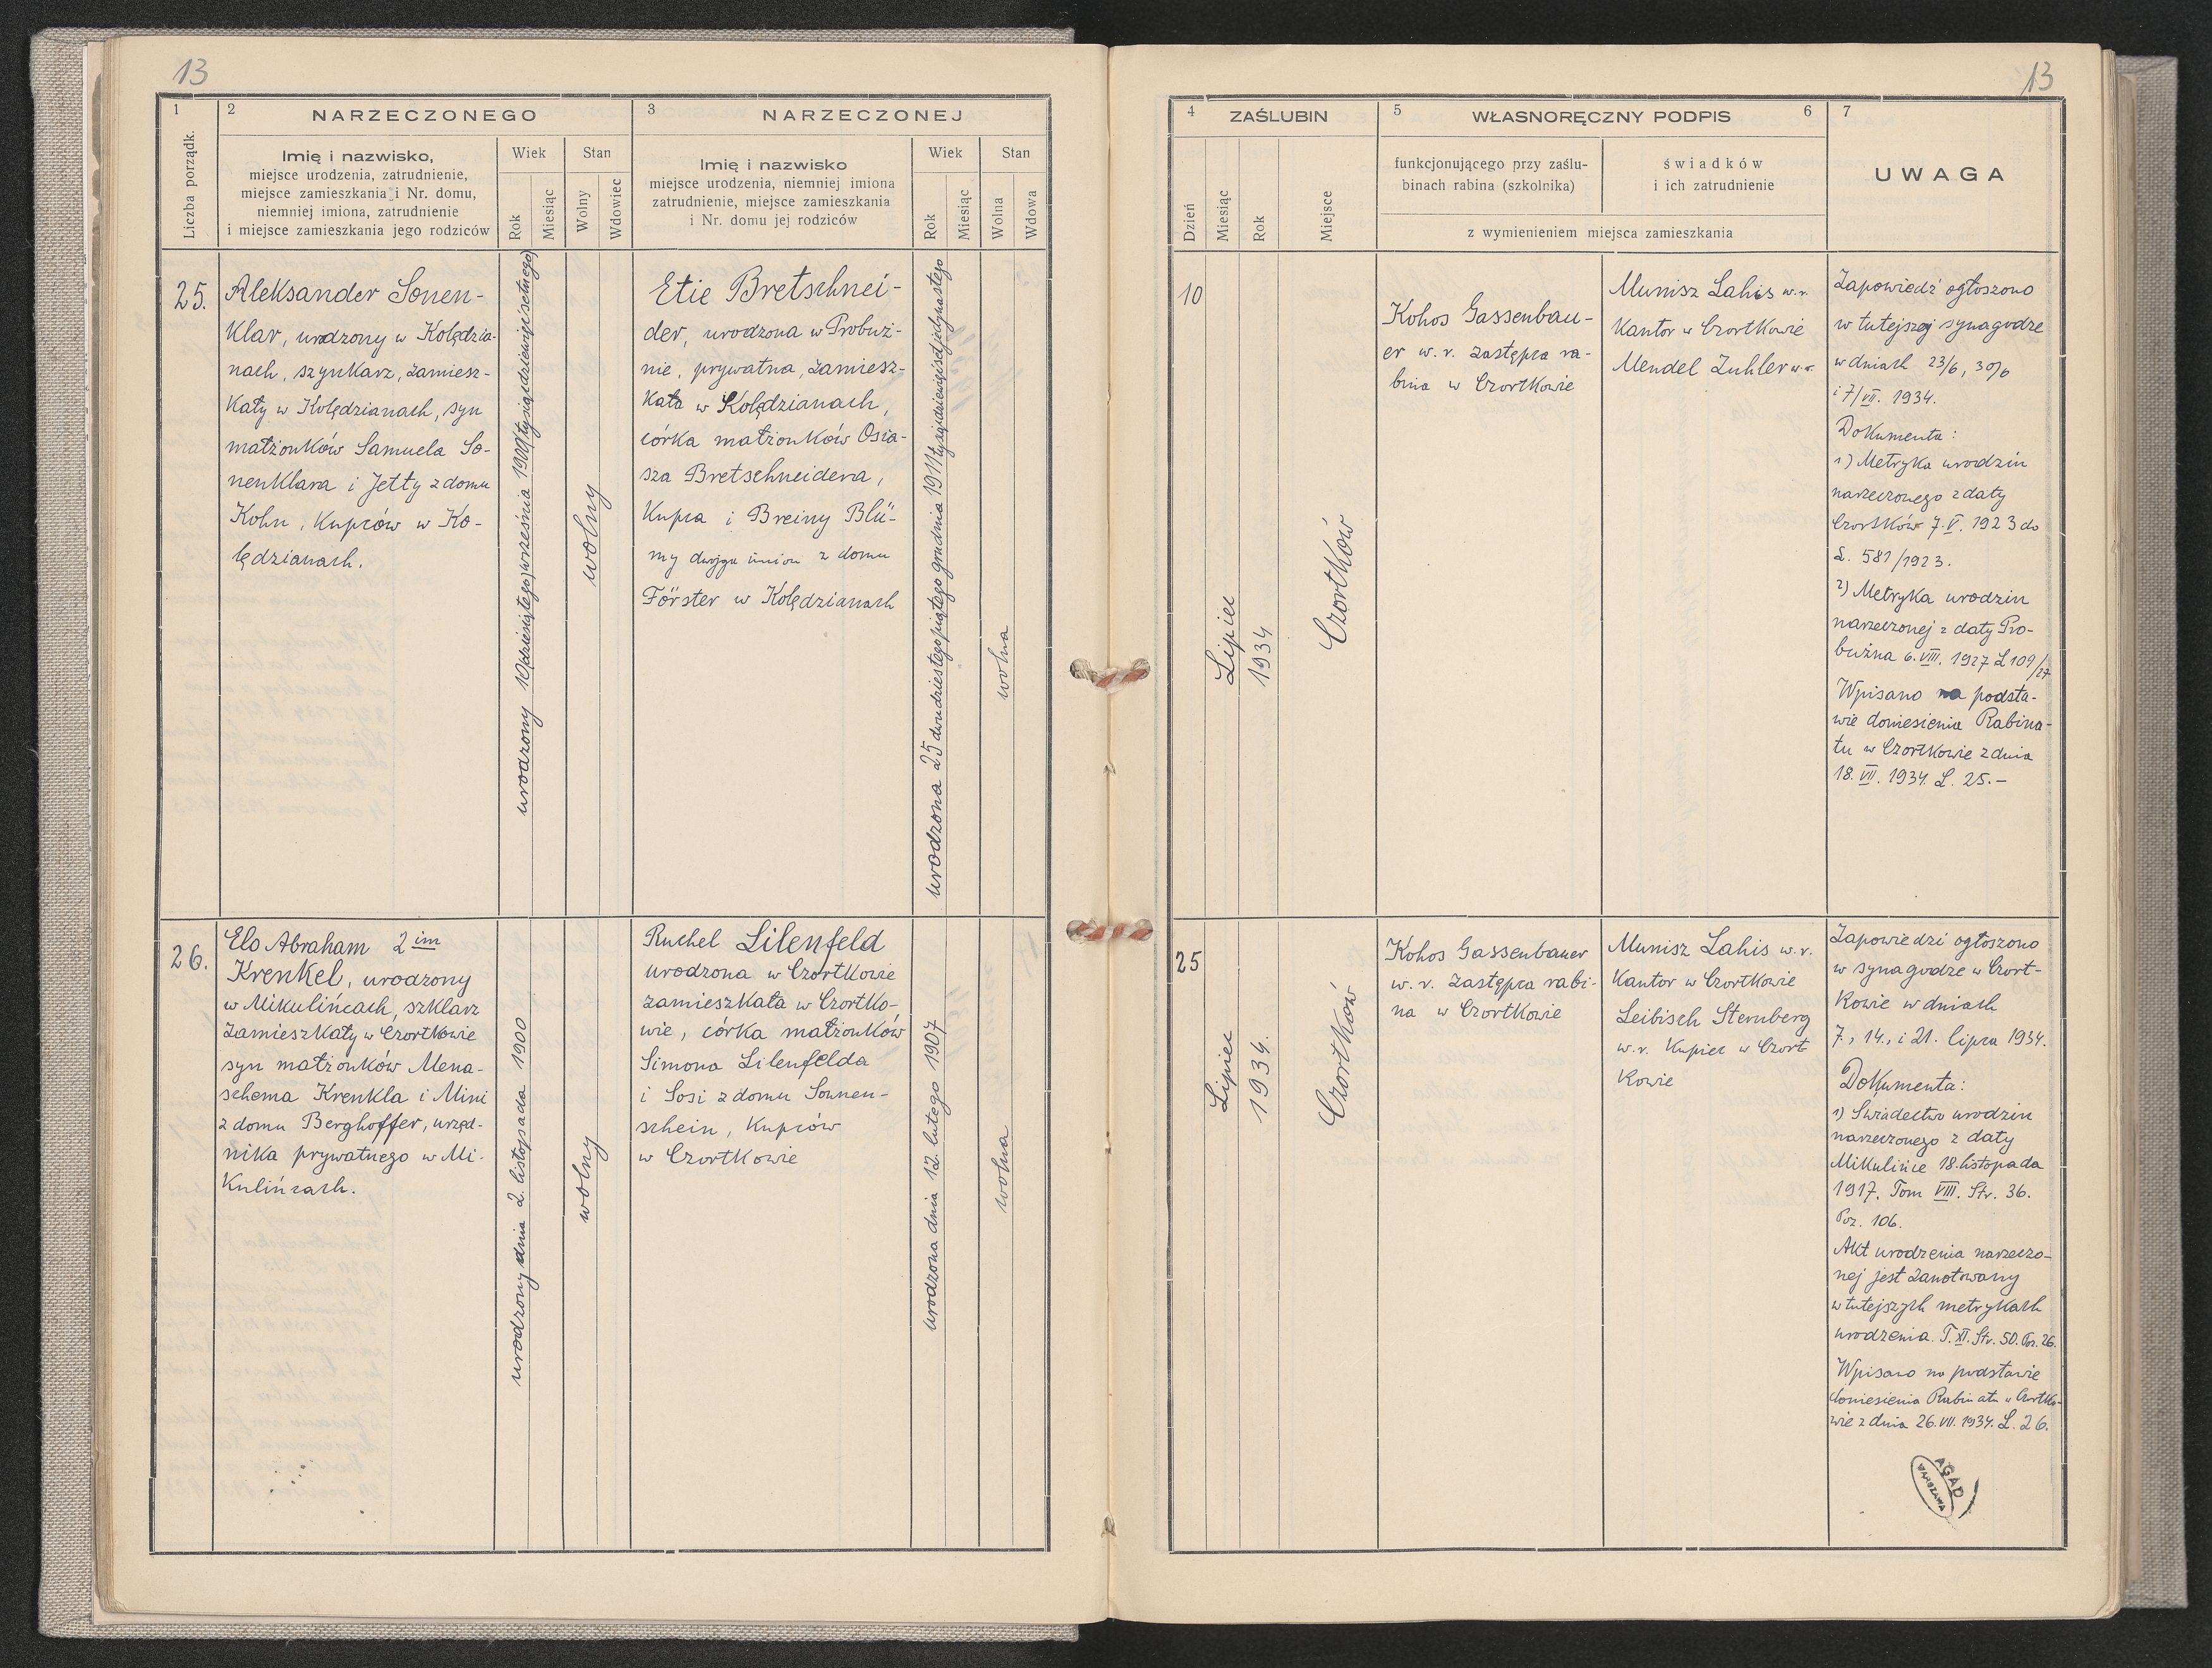 13
1
2
NARZECZONEGO
3
NARZECZONEJ
Liczba porządk.
Imię i nazwisko,
miejsce urodzenia, zatrudnienie,
miejsce zamieszkania i Nr. domu,
niemniej imiona, zatrudnienie
i miejsce zamieszkania jego rodziców
Wiek
Stan
Rok
Miesiąc
Wolny
Wdowiec
Imię i nazwisko
miejsce urodzenia, niemniej imiona
zatrudnienie, miejsce zamieszkania
i Nr. domu jej rodziców
Wiek
Stan
Rok
Miesiąc
Wolna
Wdowa
25.
Aleksander Sonen-
klar, urodzony w Kolędzia-
nach, szynkarz, zamiesz-
kały w Kolędzianach, syn
małżonków Samuela So-
nenklara i Jetty z domu
Kohn, kupców w Ko-
lędzianach.
urodzony 10 (dziesiątego) września 1900 (tysiąc dziewięćsetnego)
wolny
Etie Bretschnei-
der, urodzona w Probuż-
nie, prywatna, zamiesz-
kała w Kolędzianach,
córka małżonków Osia-
sza Bretschneidera,
kupca i Breiny Blü-
my dwojga imion z domu
Förster w Kolędzianach
urodzona 25 dwudziestego piątego grudnia 1911 tysiąc dziewięćset jedynastego
wolna
26.
Elo Abraham 2 im
Krenkel, urodzony
w Mikulińcach, szklarz
zamieszkały w Czortkowie
syn małżonków Mena-
schema Krenkla i Mini
z domu Berghoffer, urzęd-
nika prywatnego w Mi-
kulińcach.
urodzony dnia 2. listopada 1900
wolny
Ruchel Lilenfeld
urodzona w Czortkowie
zamieszkała w Czortko-
wie, córka małżonków
Simona Lilenfelda
i Sosi z domu Sonnen-
schein, kupców
w Czortkowie
urodzona dnia 12. lutego 1907
wolna
13
4
ZAŚLUBIN
5
WŁASNORĘCZNY PODPIS
6
7
Dzień
Miesiąc
Rok
Miejsce
funkcjonującego przy zaślu-
binach rabina (szkolnika)
świadków
i ich zatrudnienie
z wymienieniem miejsca zamieszkania
UWAGA
10
Lipiec
1934
Czortków
Kohos Gassenbau-
er w. r. zastępca ra-
bina w Czortkowie
Munisz Lahis w. r.
Kantor w Czortkowie
Mendel Zuhler w. r.
Zapowiedź ogłoszono
w tutejszej synagodze
w dniach 23/6, 30/6
i 7/VII. 1934.
Dokumenta:
1) Metryka urodzin
narzeczonego z daty
Czortków 7. V. 1923 do
L. 581/1923.
2) Metryka urodzin
narzeczonej z daty Pro-
bużna 6. VIII. 1927 L 109/27
Wpisano na podsta-
wie doniesienia Rabina-
tu w Czortkowie z dnia
18. VII. 1934. L. 25.-
25
Lipiec
1934.
Czortków
Kohos Gassenbauer
w. r. zastępca rabi-
na w Czortkowie
Munisz Lahis w. r.
Kantor w Czortkowie
Leibisch Sternberg
w. r. kupiec w Czort-
kowie
Zapowiedzi ogłoszono
w synagodze w Czort-
kowie w dniach
7., 14., i 21. lipca 1934.
Dokumenta:
1) Świadectwo urodzin
narzeczonego z daty
Mikulińce 18. listopada
1917. Tom VIII. Str. 36.
Poz. 106.
Akt urodzenia narzeczo-
nej jest zanotowany
w tutejszych metrykach
urodzenia. T. XI. Str. 50. Poz. 26.
Wpisano na podstawie
doniesienia Rabinatu w Czortko-
wie z dnia 26. VII. 1934. L. 26.
AGAD
WARSZAWA